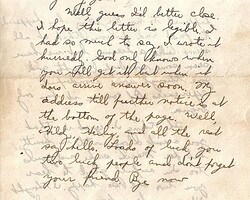 Well guess I'd better close.
I hope this letter is legible, I
had so much to say, I wrote it
hurriedly. God only knows when
you'll get it but when it
does arrive answer soon. My
address till further notice is at
the bottom of the page. Well,
and all the rest
say hello, loads of luck you
two luck people and don't forget
your friend Bye now